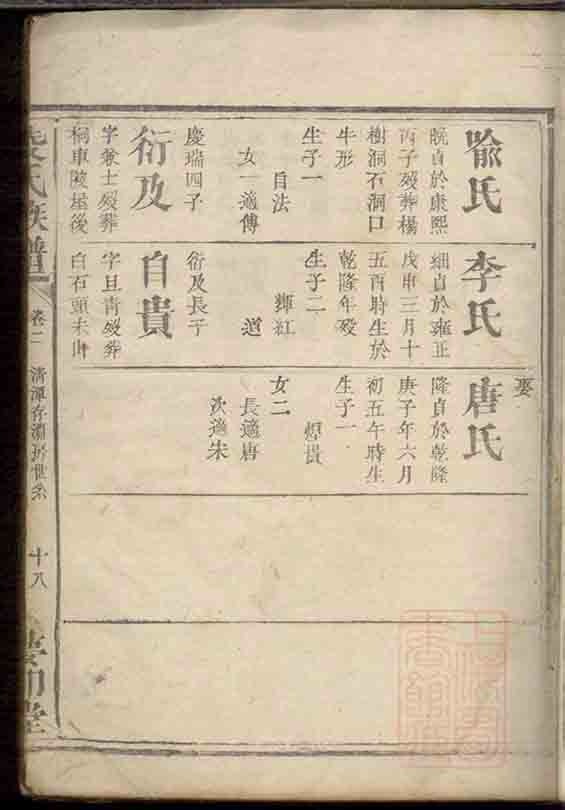 喻氏
旣貞於康熙
丙子歿葬楊
樹洞石洞口
牛形
生子一
自法
女一適傅
慶瑞四子
衍及
字兼士歿葬
桐車陂屋後
李氏
細貞於雍正
戊申三月十
五酉時生於
乾隆年歿
生子二
輝紅
道
衍及長子
自貴
字旦青歿葬
白石頭未山
娶
唐氏
隆貞於乾隆
庚子年六月
初五午時生
生子一
女二
長適唐
次適朱
氏族譜
卷二
清潭存淵房世系
十八